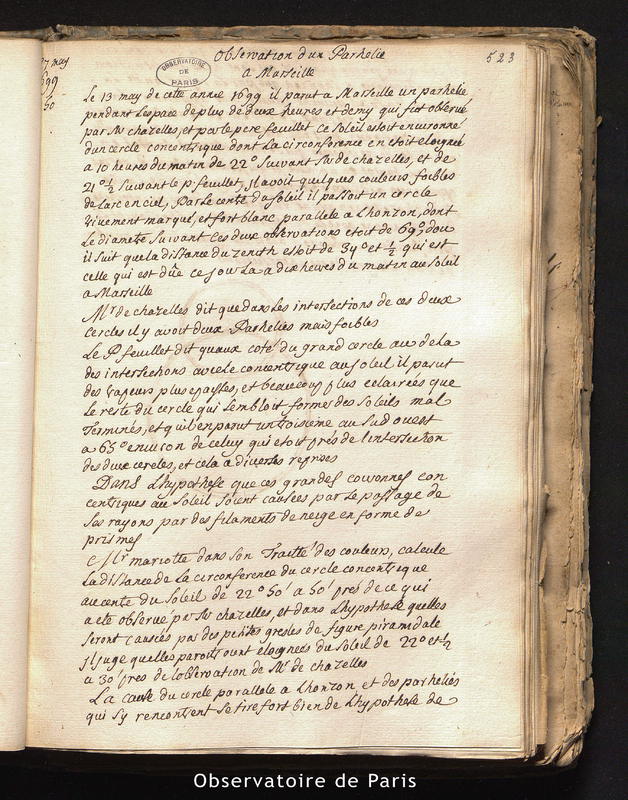 7 may
699
50
Observation d'un Parhelie
a Marseille
523
OBSERVATOIRE
DE
PARIS
Le 13 may de cette année 1699 il parut a Marseille un parhelie
pendant l'espace de plus de deux heures et demy qui fut observé
par Mr chazelles, et par le pere feuillet ce soleil estoit environné
d'un cercle concentrique dont la circonference en estoit eloigné
a 10 heures du matin de 22° suivant Mr de chazelles, et de
21° ½ suivant le p. feuillet, il avoit quelques couleurs foibles
de l'arc en ciel, Par le centre du soleil il passoit un cercle
vivement marqué, et fort blanc parallele a L'horizon, dont
Le diametre suivant ces deux observations etoit de 69° dou
il suit que la distance du zenith estoit de 34° et ½ qui est
celle qui est dûe ce jour La a dix heures du matin au soleil
a Marseille
Mr de chazelles dit que dans Les intersections de ces deux
cercles il y avoit deux Parhelies mais foibles
Le P feuillet dit qu'aux coté du grand cercle au dela
des intersections avec le concentrique au soleil il parut
des vapeurs plus epaisses, et beaucoup plus eclairées que
Le reste du cercle qui sembloit former des soleils mal
Terminés, et qu'il en parut un troisieme au sud ouest
a 65° environ de celuy qui etoit près de l'intersection
des deux cercles, et cela a diverses reprises
Dans L'hypothese que ces grandes couronnes con
centriques au soleil soient causées par le passage de
ses rayons par des filaments de neige en forme de
prismes
Mr mariotte dans son Traitté des couleurs, calcule
La distance de La circonference du cercle concentrique
au centre du soleil de 22° 50' a 50' prés de ce qui
a eté observé par Mr chazelles, et dans L'hypothese quelles
seront causées par des petites gresles de figure piramidale
Il juge quelles paroitront eloignées du soleil de 22° et ½
a 30' prés de l'observation de Mr de chazelles
La cause du cercle parallele a L'horizon et des parhelies
qui s'y rencontrent se tire fort bien de L'hypothese de
Observatoire de Paris